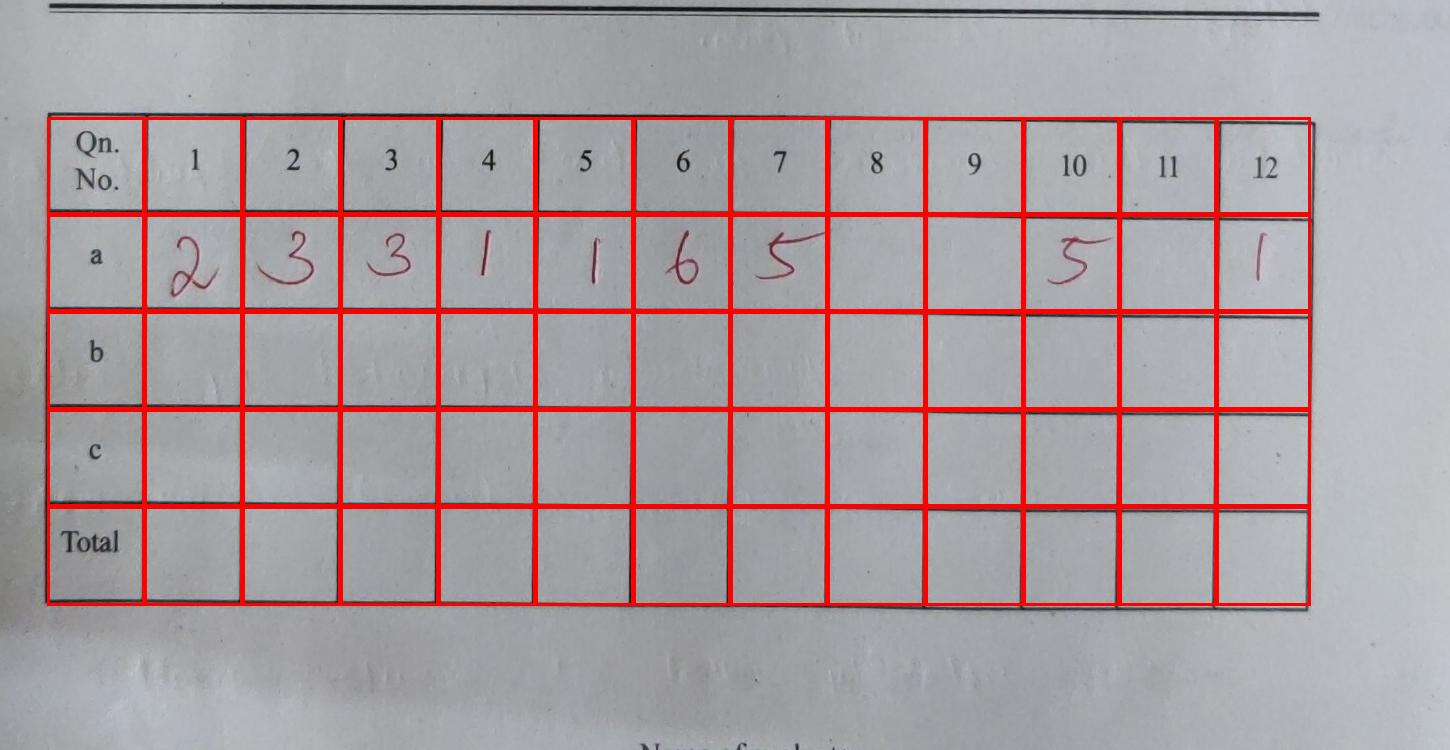 Qn. No. 1 2 3 4 5 6 7 8 9 10 11 12
a 2 3 3 1 1 6 5 5 1
b
c
Total